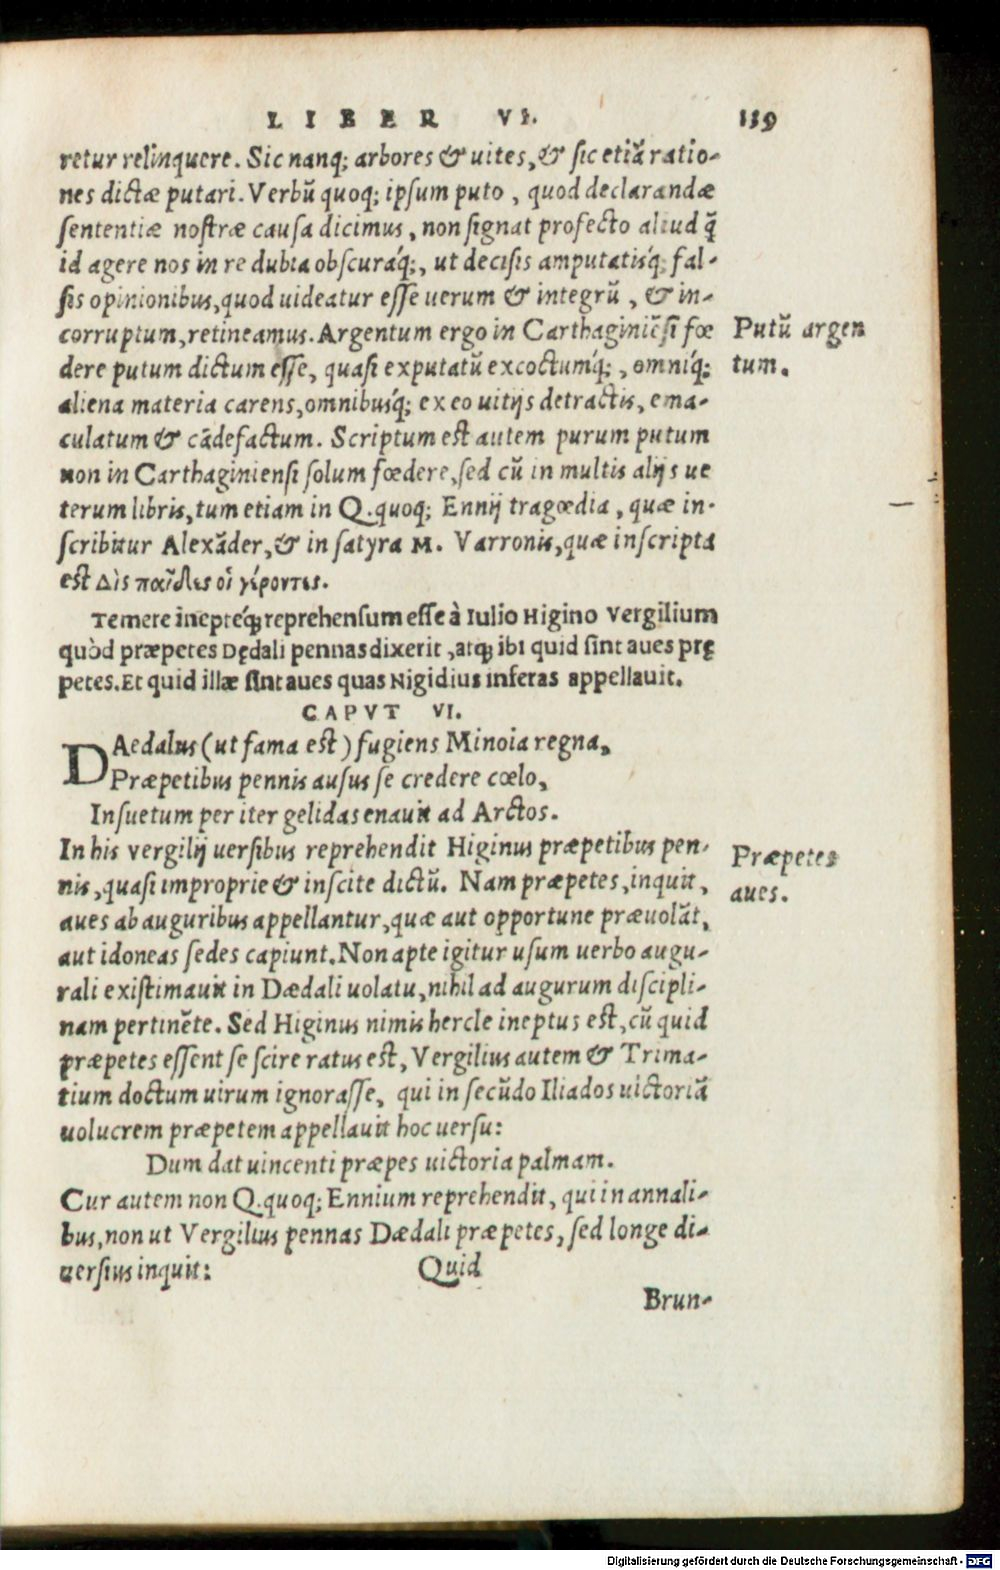 LIBER VI. 119
retur relinquere. Sic nanq; arbores & uites, & sic etiã ratio-
nes dictæ putari. Verbũ quoq; ipsum puto, quod declarandæ
sententiæ nostræ causa dicimus, non signat profecto aliud q̃
id agere nos in re dubia obscuráq;, ut decisis amputatisq́; fal-
sis opinionibus, quod uideatur esse uerum & integrũ, & in-
corruptum, retineamus. Argentum ergo in Carthaginiẽsi fœ
dere putum dictum esse, quasi exputatũ excoctumq́;, omniq́;
aliena materia carens, omnibusq́; ex eo uitijs detractis, ema-
culatum & cãdefactum. Scriptum est autem purum putum
non in Carthaginiensi solum fœdere, sed cũ in multis alijs ue
terum libris, tum etiam in Q. quoq; Ennij tragœdia, quæ in-
scribitur Alexãder, & in satyra M. Varronis, quæ inscripta
est Δὶς παῖδες οἱ γέροντες.
Putũ argen
tum.
Temere ineptéq́; reprehensum esse à Iulio Higino Vergilium
quòd præpetes Dędali pennas dixerit, atq; ibi quid sint aues prę
petes. Et quid illæ sint aues quas Nigidius inferas appellauit.
CAPVT VI.
DAedalus (ut fama est) fugiens Minoia regna,
Præpetibus pennis ausus se credere cœlo,
Insuetum per iter gelidas enauit ad Arctos.
In his Vergilij uersibus reprehendit Higinus præpetibus pen-
nis, quasi improprie & inscite dictũ. Nam præpetes, inquit,
aues ab auguribus appellantur, quæ aut opportune præuolãt,
aut idoneas sedes capiunt. Non apte igitur usum uerbo augu-
rali existimauit in Dædali uolatu, nihil ad augurum discipli-
nam pertinẽte. Sed Higinus nimis hercle ineptus est, cũ quid
præpetes essent se scire ratus est, Vergilius autem & Trima-
tium doctum uirum ignorasse, qui in secũdo Iliados uictoriã
uolucrem præpetem appellauit hoc uersu:
Dum dat uincenti præpes uictoria palmam.
Cur autem non Q. quoq; Ennium reprehendit, qui in annali-
bus, non ut Vergilius pennas Dædali præpetes, sed longe di-
uersius inquit: Quid
Brun-
Præpetes
aues.
Digitalisierung gefördert durch die Deutsche Forschungsgemeinschaft - DFG